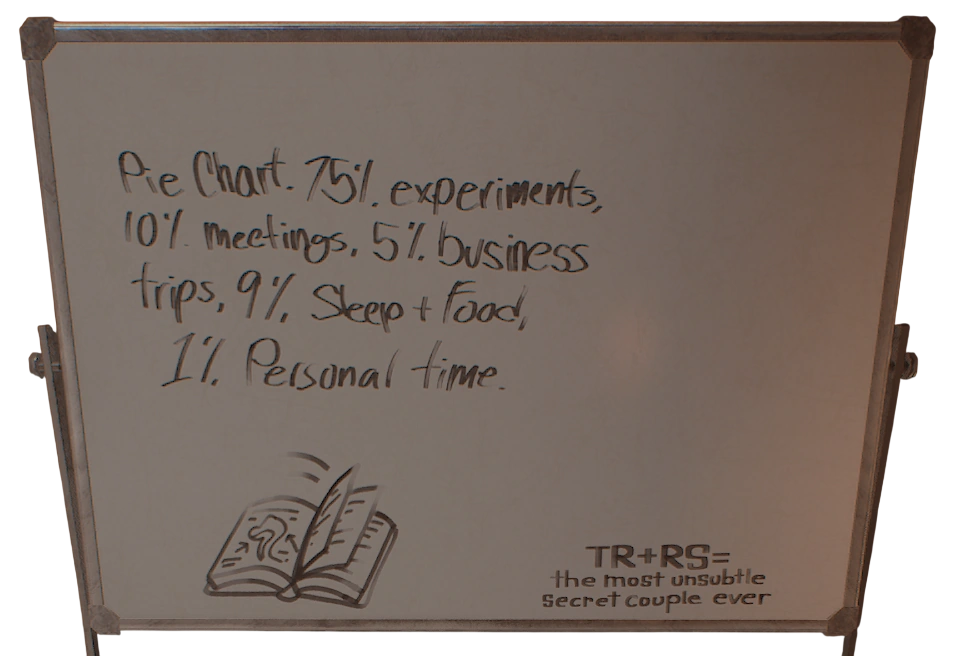 Pie Chart. 75%. experiments,
10%. meetings, 5%. business
trips, 9%. Sleep + Food,
1%. Personal time.
TR+RS=
the most unsubtle
secret couple ever